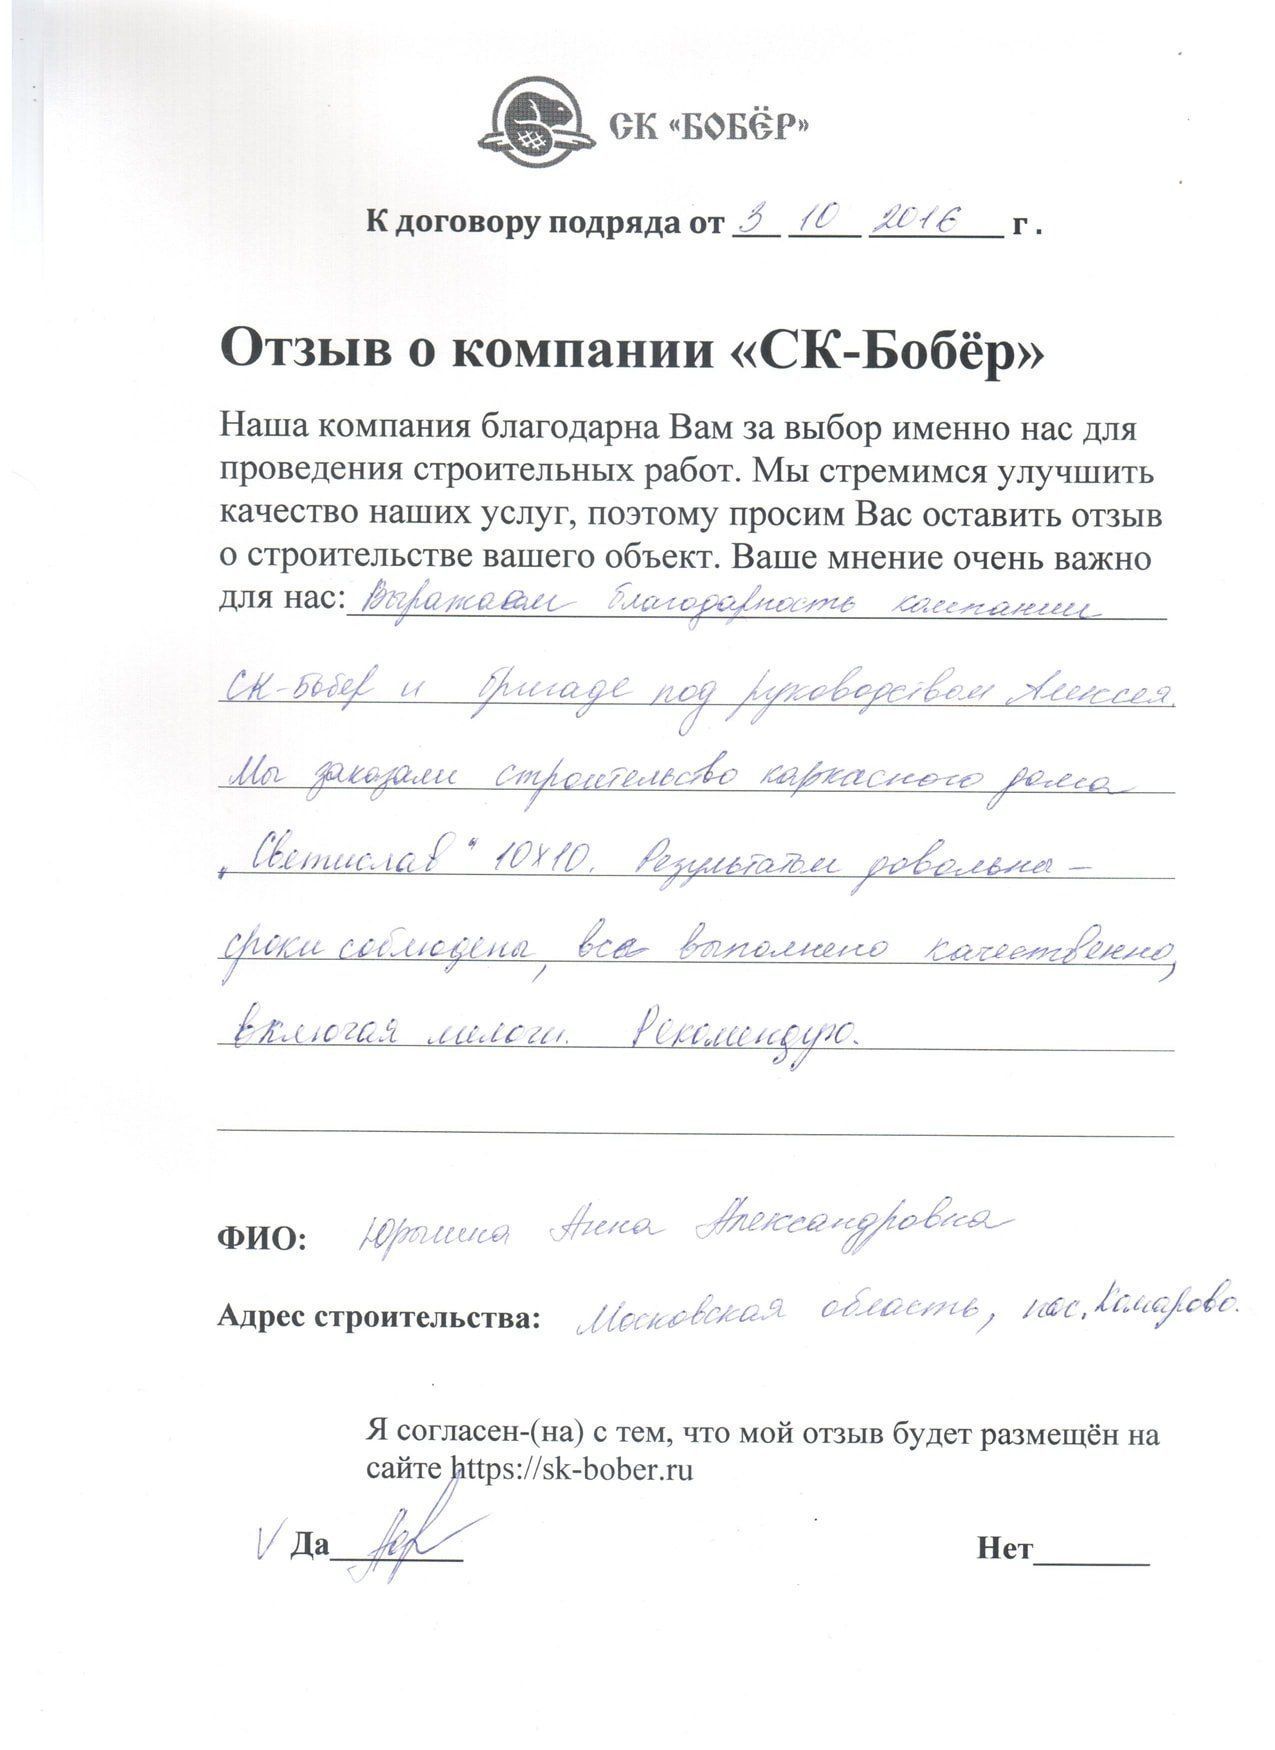 СК «БОБЁР»
К договору подряда от 3 10 2016 г .
Отзыв о компании «СК-Бобёр»
Наша компания благодарна Вам за выбор именно нас для
проведения строительных работ. Мы стремимся улучшить
качество наших услуг, поэтому просим Вас оставить отзыв
о строительстве вашего объект. Ваше мнение очень важно
для нас: Выражаем благодарность компании
СК-Бобер и бригаде под руководством Алексея.
Мы заказали строительство каркасного дома
„Светислав“ 10х10. Результатом довольны –
сроки соблюдены, все выполнено качественно,
включая мелочи. Рекомендую.
ФИО: Юрышка Анна Александровна
Адрес строительства: Московская область, пос. Комарово.
Я согласен-(на) с тем, что мой отзыв будет размещён на
сайте https://sk-bober.ru
V Да
Нет